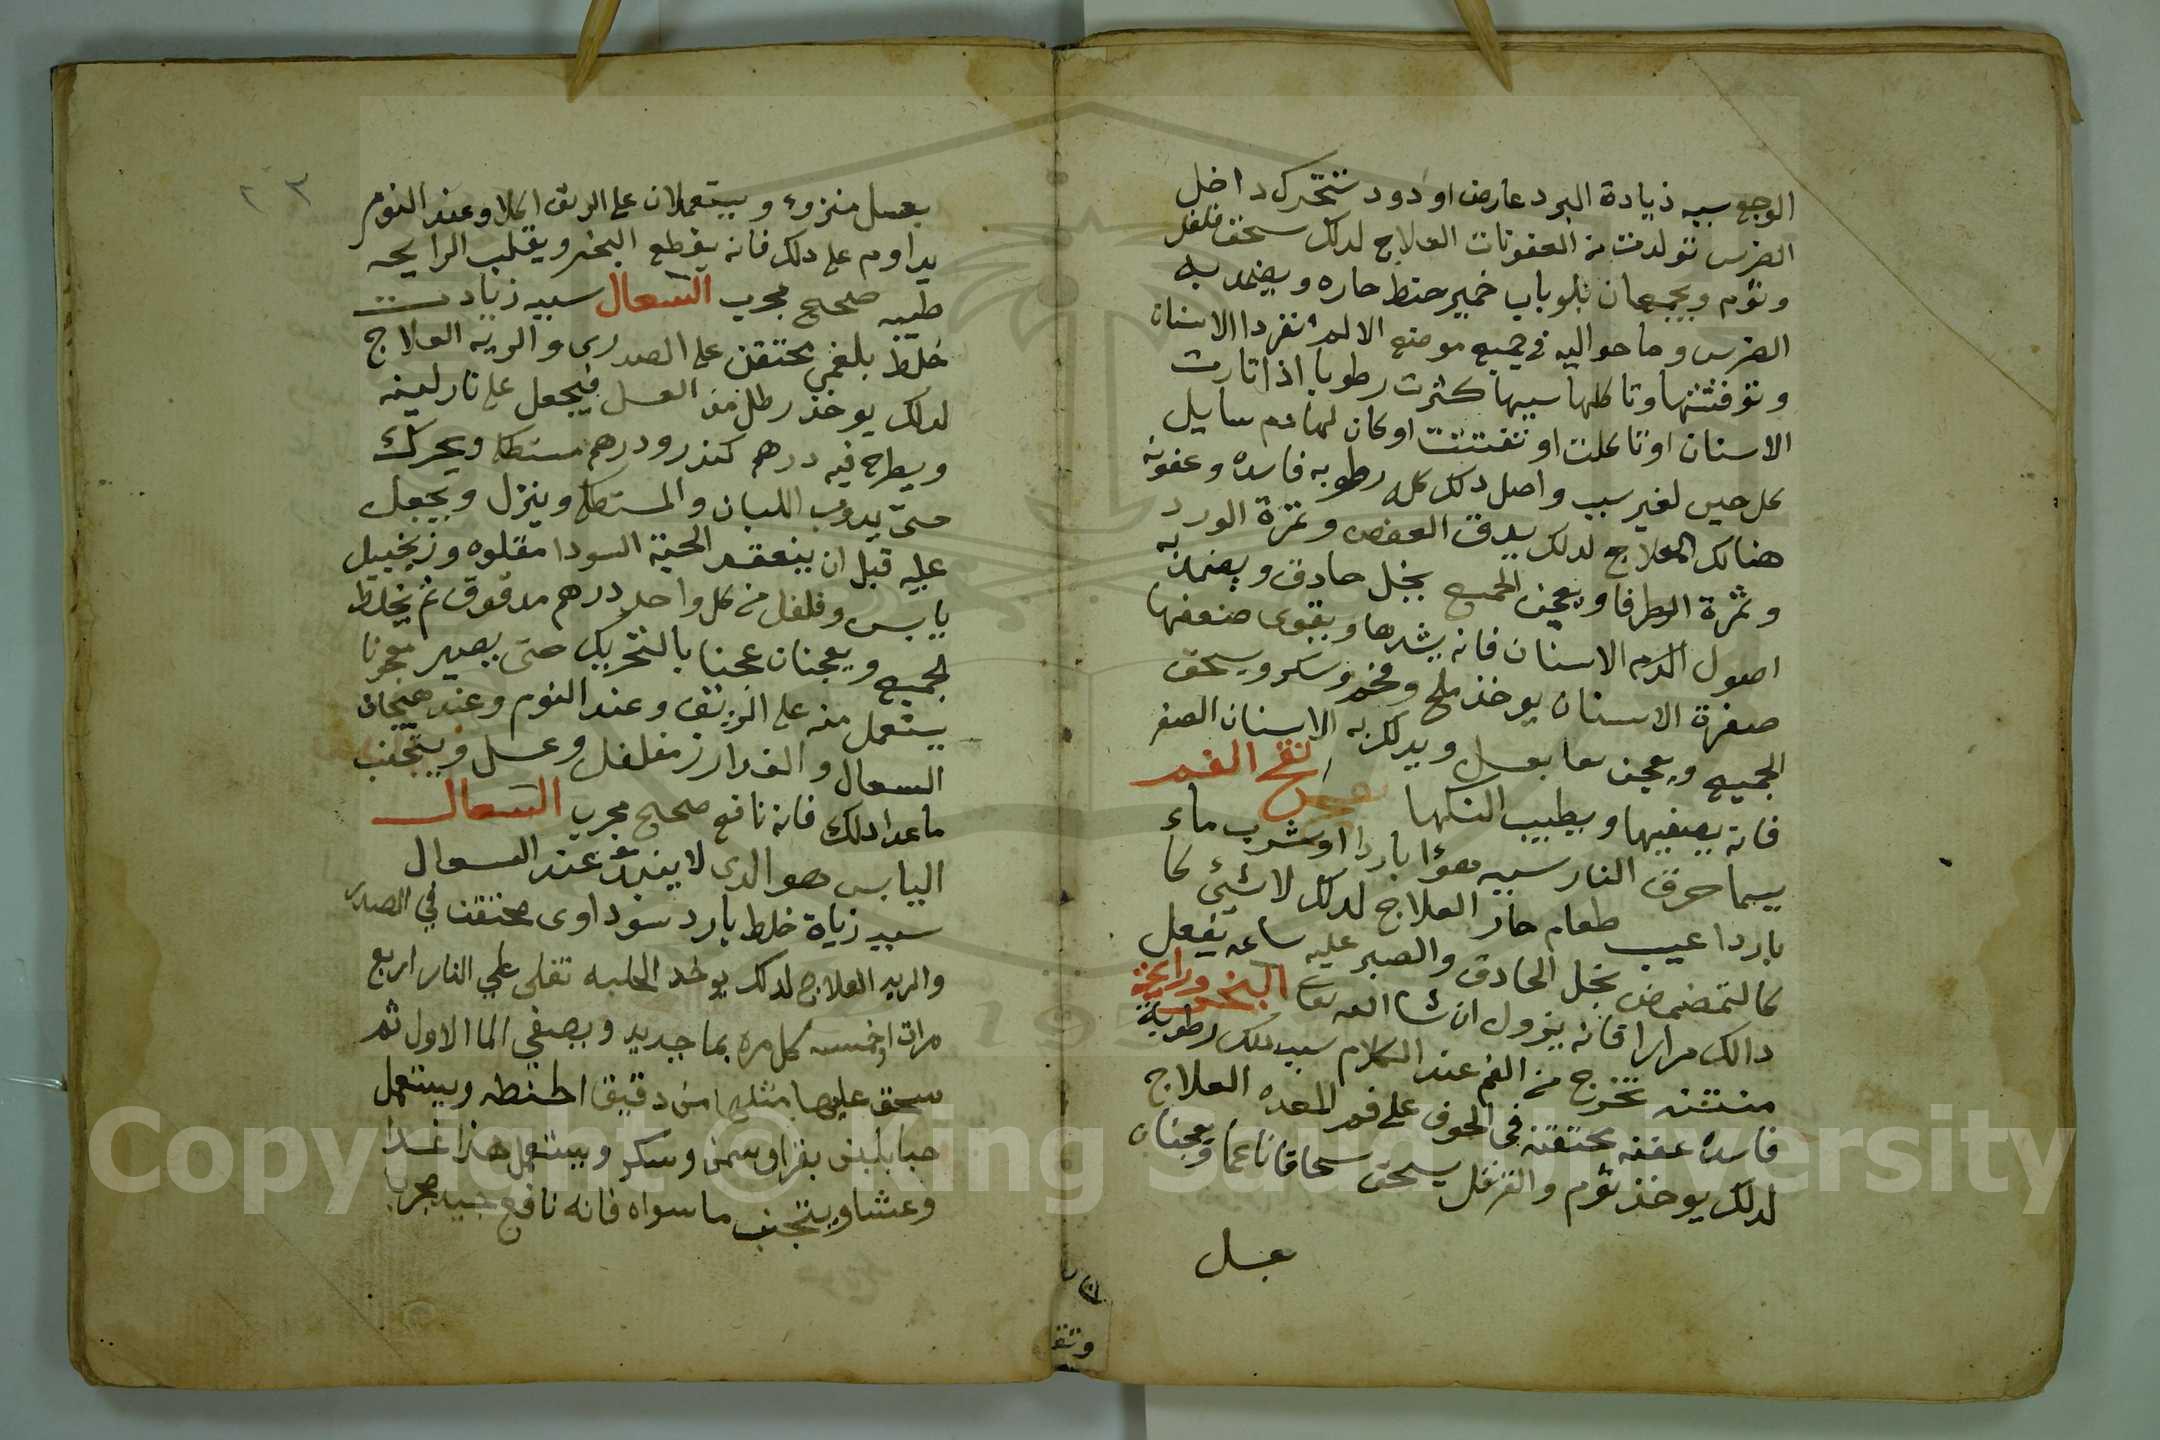 الوجع سببه زيادة البرد عارض او دود تتحرك داخل
الضرس تولدت من العفونات العلاج لدلك سحق فلفل
وثوم ويجمعان بلوباب خمير حنطه حاره ويضمد به
الضرس وما حواليه في جميع موضع الالم
وتاكلها سببها كثرت رطوبا اذا ثارت
الاسنان او تاكلت او تفتتت او كان لها دم سايل
كل حين لغير سبب واصل دلك كله رطوبه فاسده وعفونه
هنالك العلاج لدلك يدق العفص وثمرة الورد
وثمرة الطرفا ويعجن الجميع بخل حادق ويضمد به
اصول الدم الاسنان فانه يشدها ويقوى ضعفها
صفرة الاسنان يوخذ ملح وفحم وسكر ويسحق
الجميع ويعجن بعسل ويدلك به الاسنان الصفر
فانه يصفيها ويطيب النكها نفح الفم
سببه هوا باردا او شرب ماء
باردا عيب طعام حار العلاج لدلك لا شئ كا
كالتمضمض بخل الحادق والصبر عليه ساعه يفعل
دالك مرارا فانه يزول ان شا الله تعا البخر ورايحة
منتنه تخرج من الفم عند الكلام سبب دلك رطوبة
فاسده عفنه محتقنه في الجوف على فم المعده العلاج
لدلك يوخذ ثوم والقرنفل يسحق سحاقا ناعما ويعجنان
عسل
٢٣
بعسل منزوع ويستعملان على الريق اكلا وعند النوم
يداوم على دلك فانه يقطع البخر ويقلب الرايحه
طيبه صحيح مجرب السعال سببه زيادت
خلط بلغمي محتقن على الصدر والريه العلاج
لدلك يوخذ رطل من العسل فيجعل على نار لينه
ويطرح فيه درهم كندر ودرهم مستكا ويحرك
حتى يدوب اللبان والمستكا وينزل ويجعل
عليه قبل ان ينعقد الحبة السودا مقلوه وزنجبيل
يابس وفلفل من كل واحد درهم مدقوق ثم يخلط
الجميع ويعجنان عجنا بالتحريك حتى يصير معجونا
يستعمل منه على الريق وعند النوم وعند هيجان
السعال والغدا رز مفلفل وعسل ويتجنب
ماعدا دلك فانه نافع صحيح مجرب السعال
اليابس هو الدى لا ينفث عند السعال
سببه زياة خلط بارد سوداوى محتقن في الصدر
والريه العلاج لدلك يوخد الحلبه تغلى على النار اربع
مرات او خمسه كل مره بما جديد ويصفي الما الاول ثم
سحق عليها مثلها من دقيق الحنطه ويستعمل
حبا بلبن بقر او سمن وسكر ويستعمل هذا غدا
وعشا ويتجنب ما سواه فانه نافع جيد مجربا